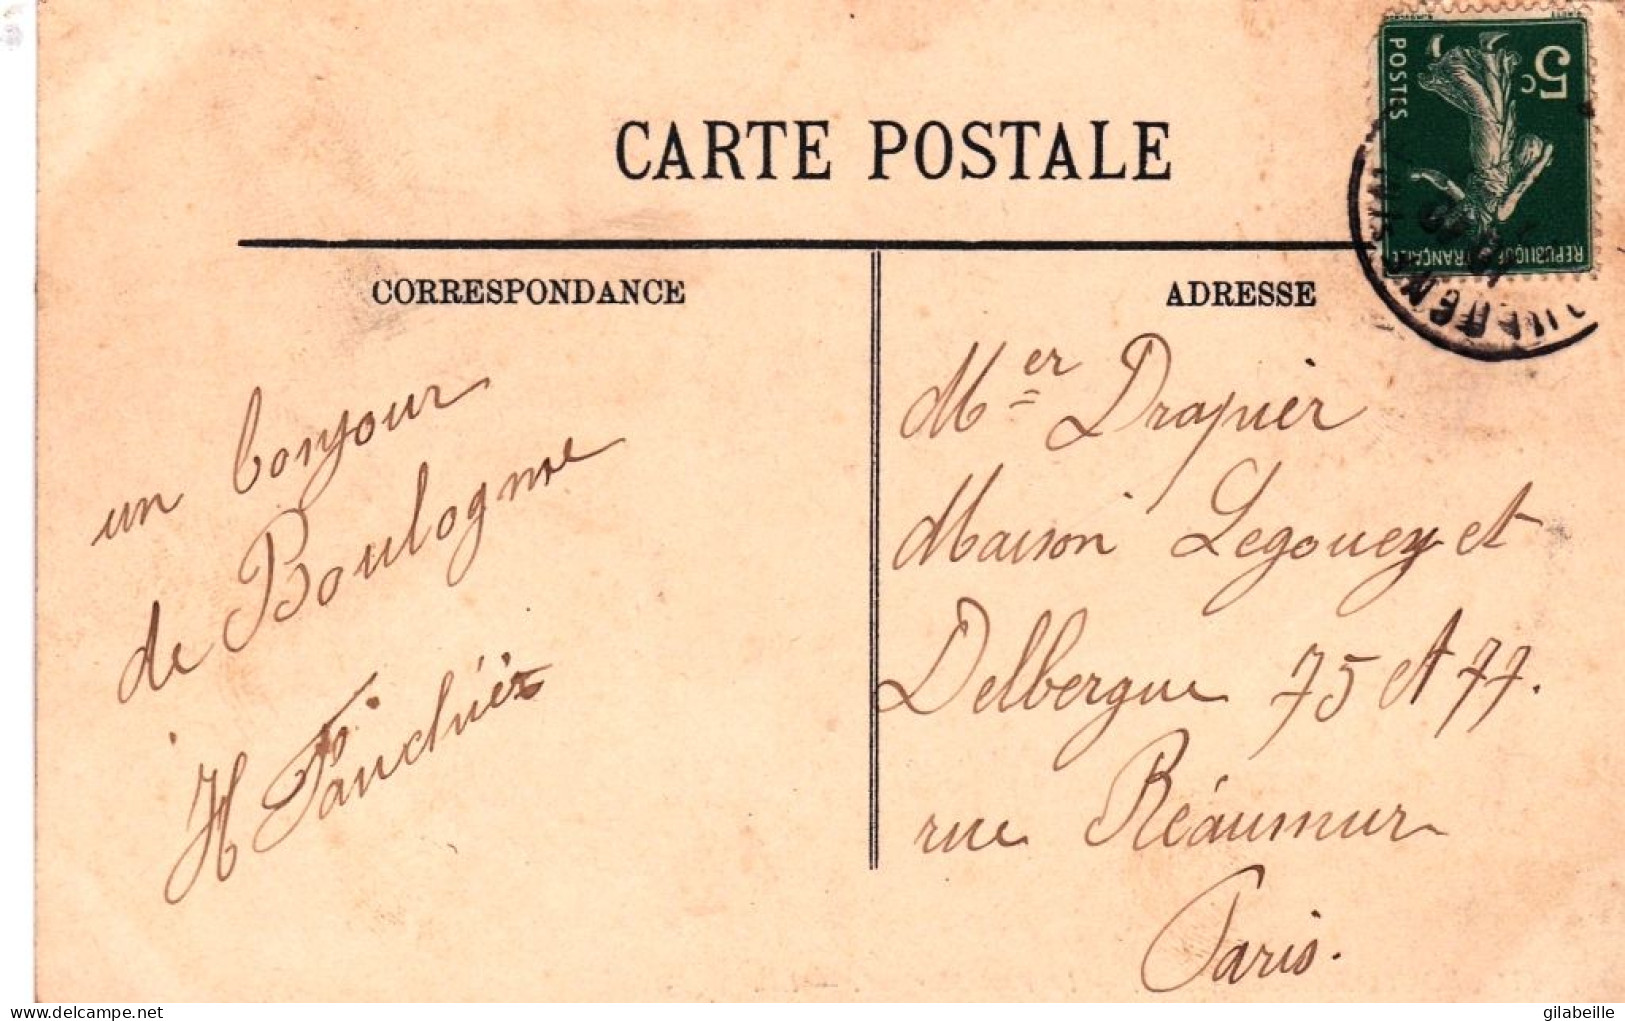 CARTE POSTALE
CORRESPONDANCE
un bonjour
de Boulogne
H
ADRESSE
Mer Drapier
Maison Legouey et
Delbergue 75 et 77.
rue Réaumur
Paris.
5c
POSTES
REPUBLIQUE FRANÇAISE
www.delcampe.net
gilabeille